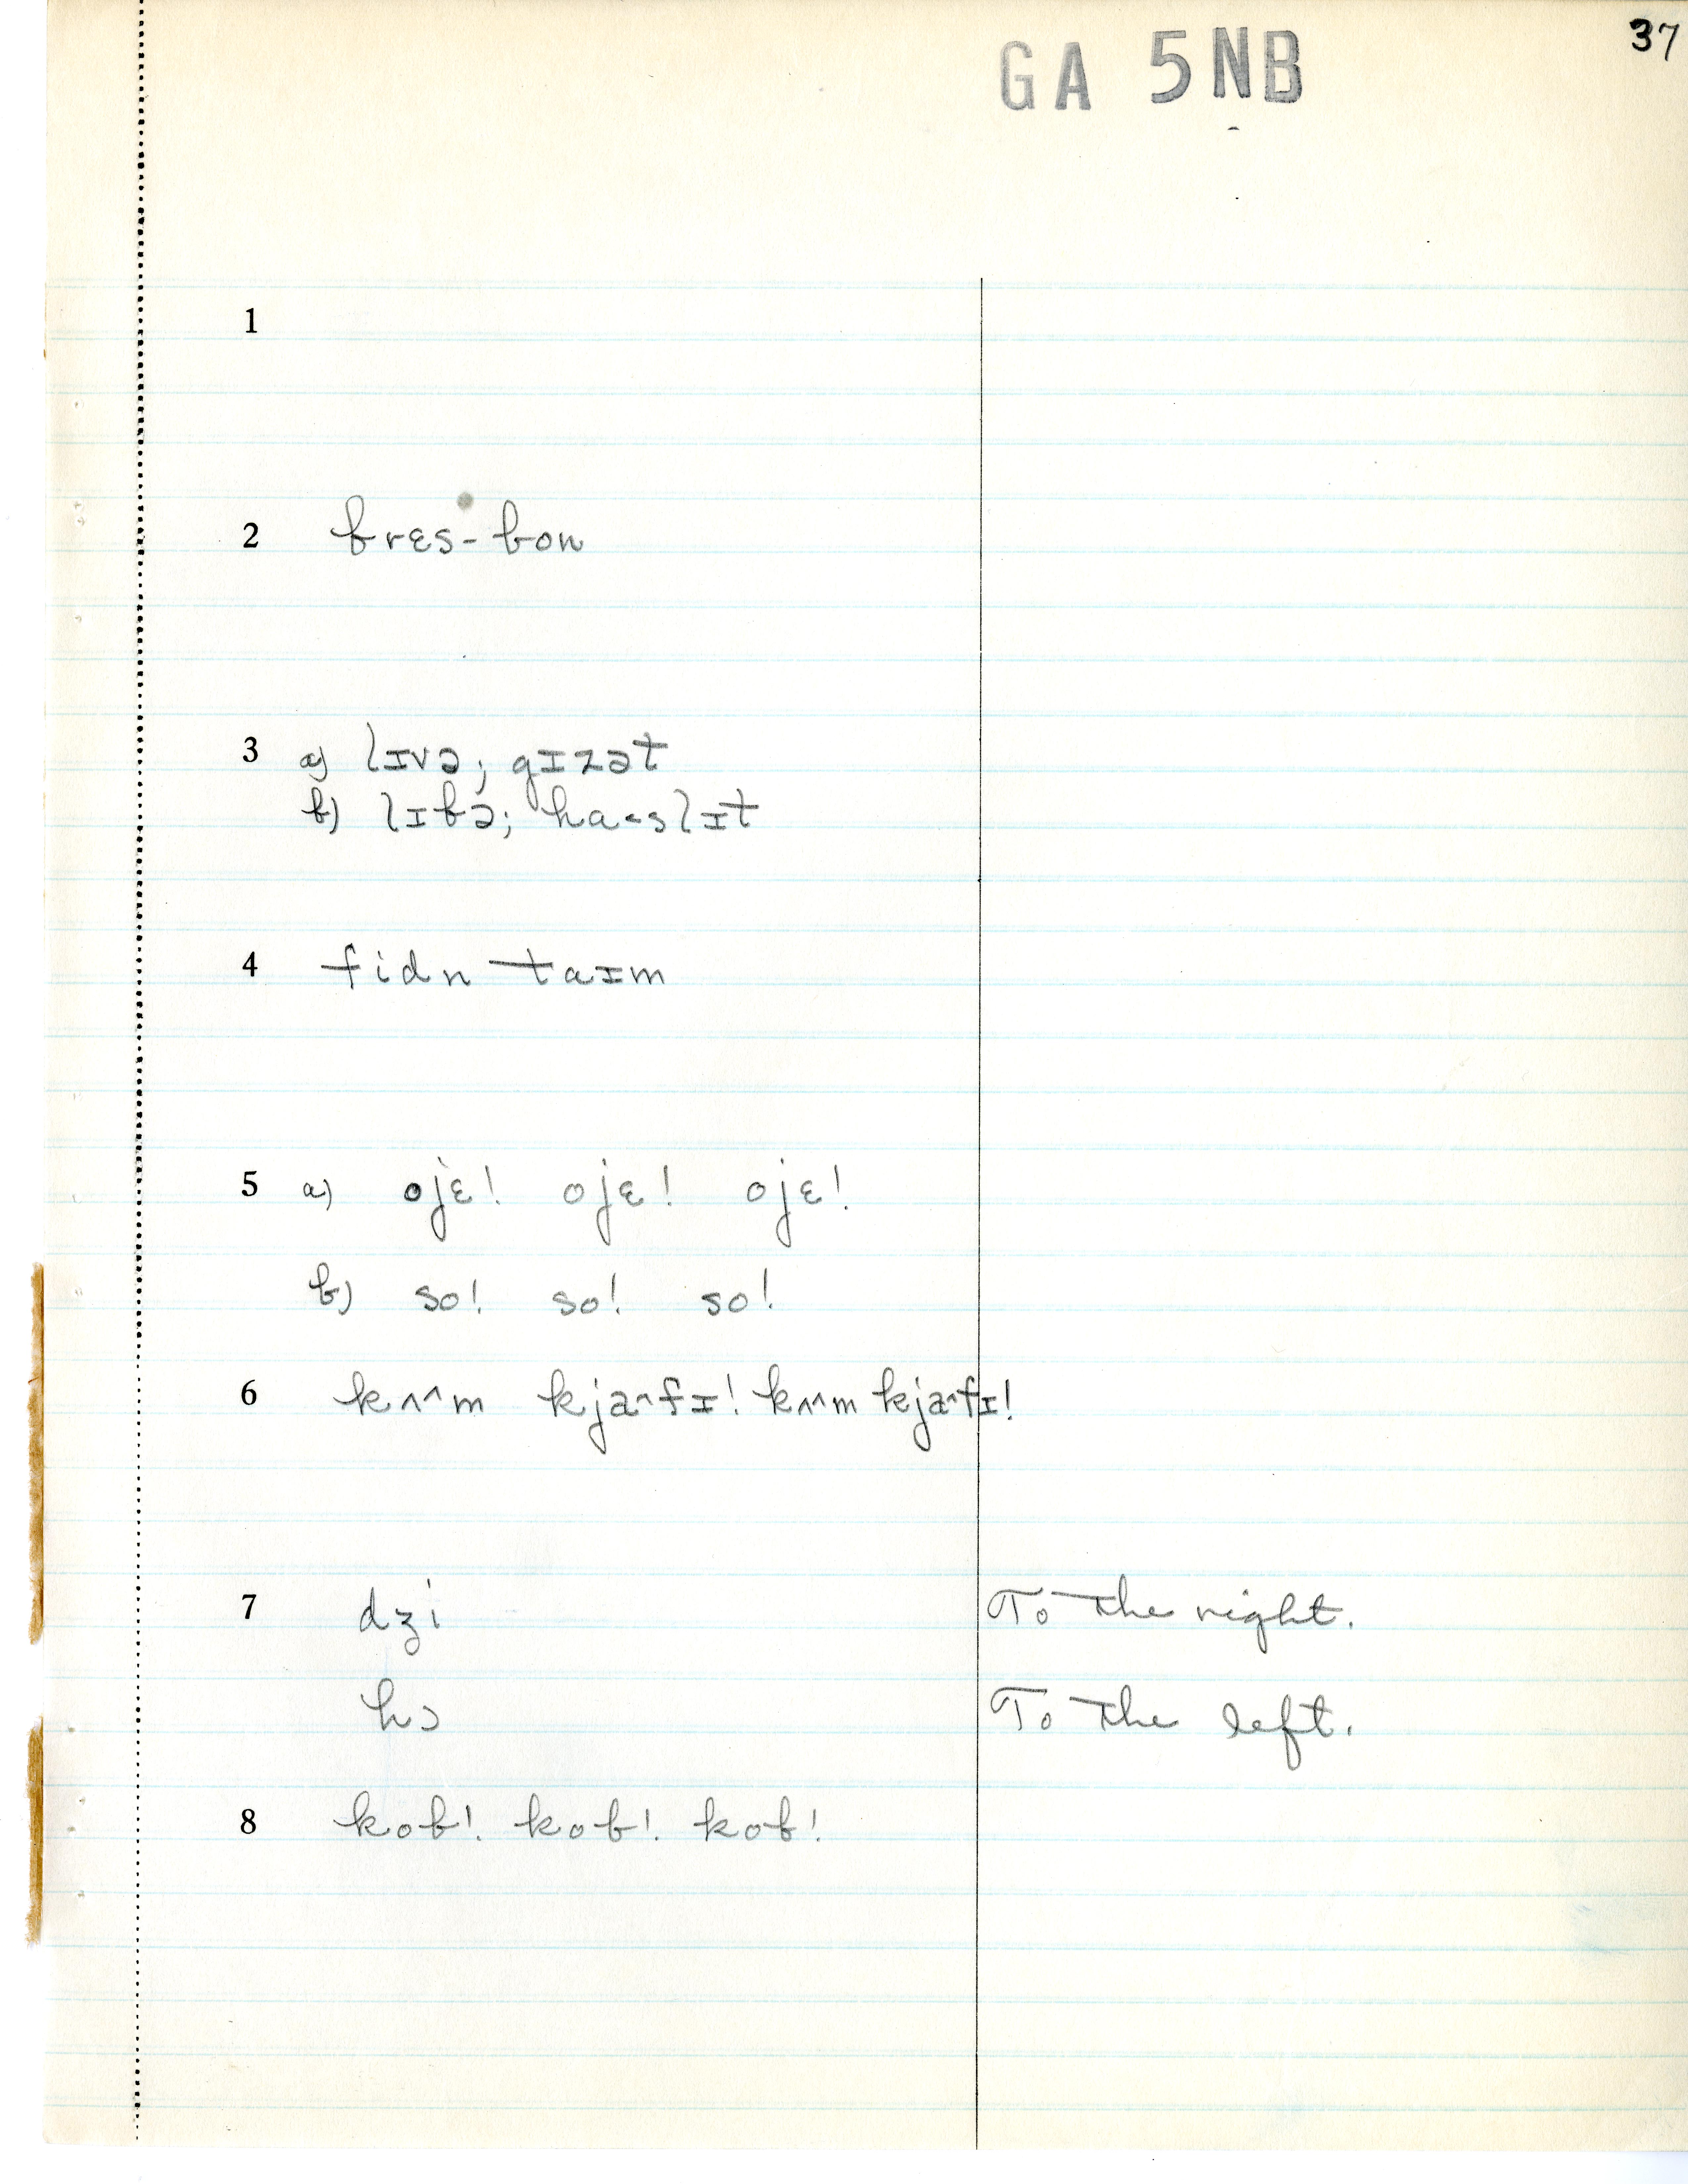 37
GA 5NB
1
2 brɛs-bon
3 a) lɪvə; gɪzət
b) lɪbə; ha˂slɪt
4 fidn taɪm
5 a) ojɛ! ojɛ! ojɛ!
b) so! so! so!
6 kʌ^m kja^fɪ! kʌ^m kja^fɪ!
7 dʒi To the right.
hɔ To the left.
8 kob! kob! kob!